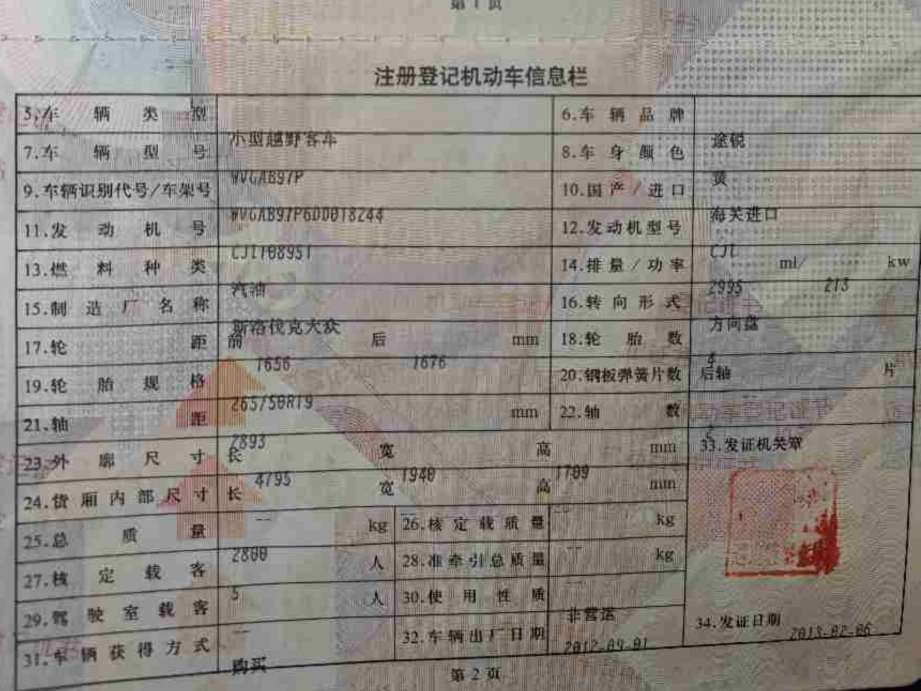 第1页
注册登记机动车信息栏
5.车辆类型 小型越野客车 6.车辆品牌 途锐
7.车辆型号 WVGAB97P 8.车身颜色 黄
9.车辆识别代号/车架号 WVGAB97P6DD018244 10.国产/进口 海关进口
11.发动机号 CJT108951 12.发动机型号 CJT
13.燃料种类 汽油 14.排量/功率 2995 ml/ 213 kw
15.制造厂名称 斯洛伐克大众 16.转向形式 方向盘
17.轮距 前 1656 后 1676 mm 18.轮胎数 4
19.轮胎规格 265/50R19 20.钢板弹簧片数 后轴 片
21.轴距 2893 mm 22.轴数 2
23.外廓尺寸 长 4795 宽 1940 高 1709 mm 33.发证机关章
24.货厢内部尺寸 长 -- 宽 -- 高 -- mm
25.总质量 2800 kg 26.核定载质量 -- kg
27.核定载客 5 人 28.准牵引总质量 -- kg
29.驾驶室载客 -- 人 30.使用性质 非营运
31.车辆获得方式 购买 32.车辆出厂日期 2012-09-01 34.发证日期 2013-02-06
第2页